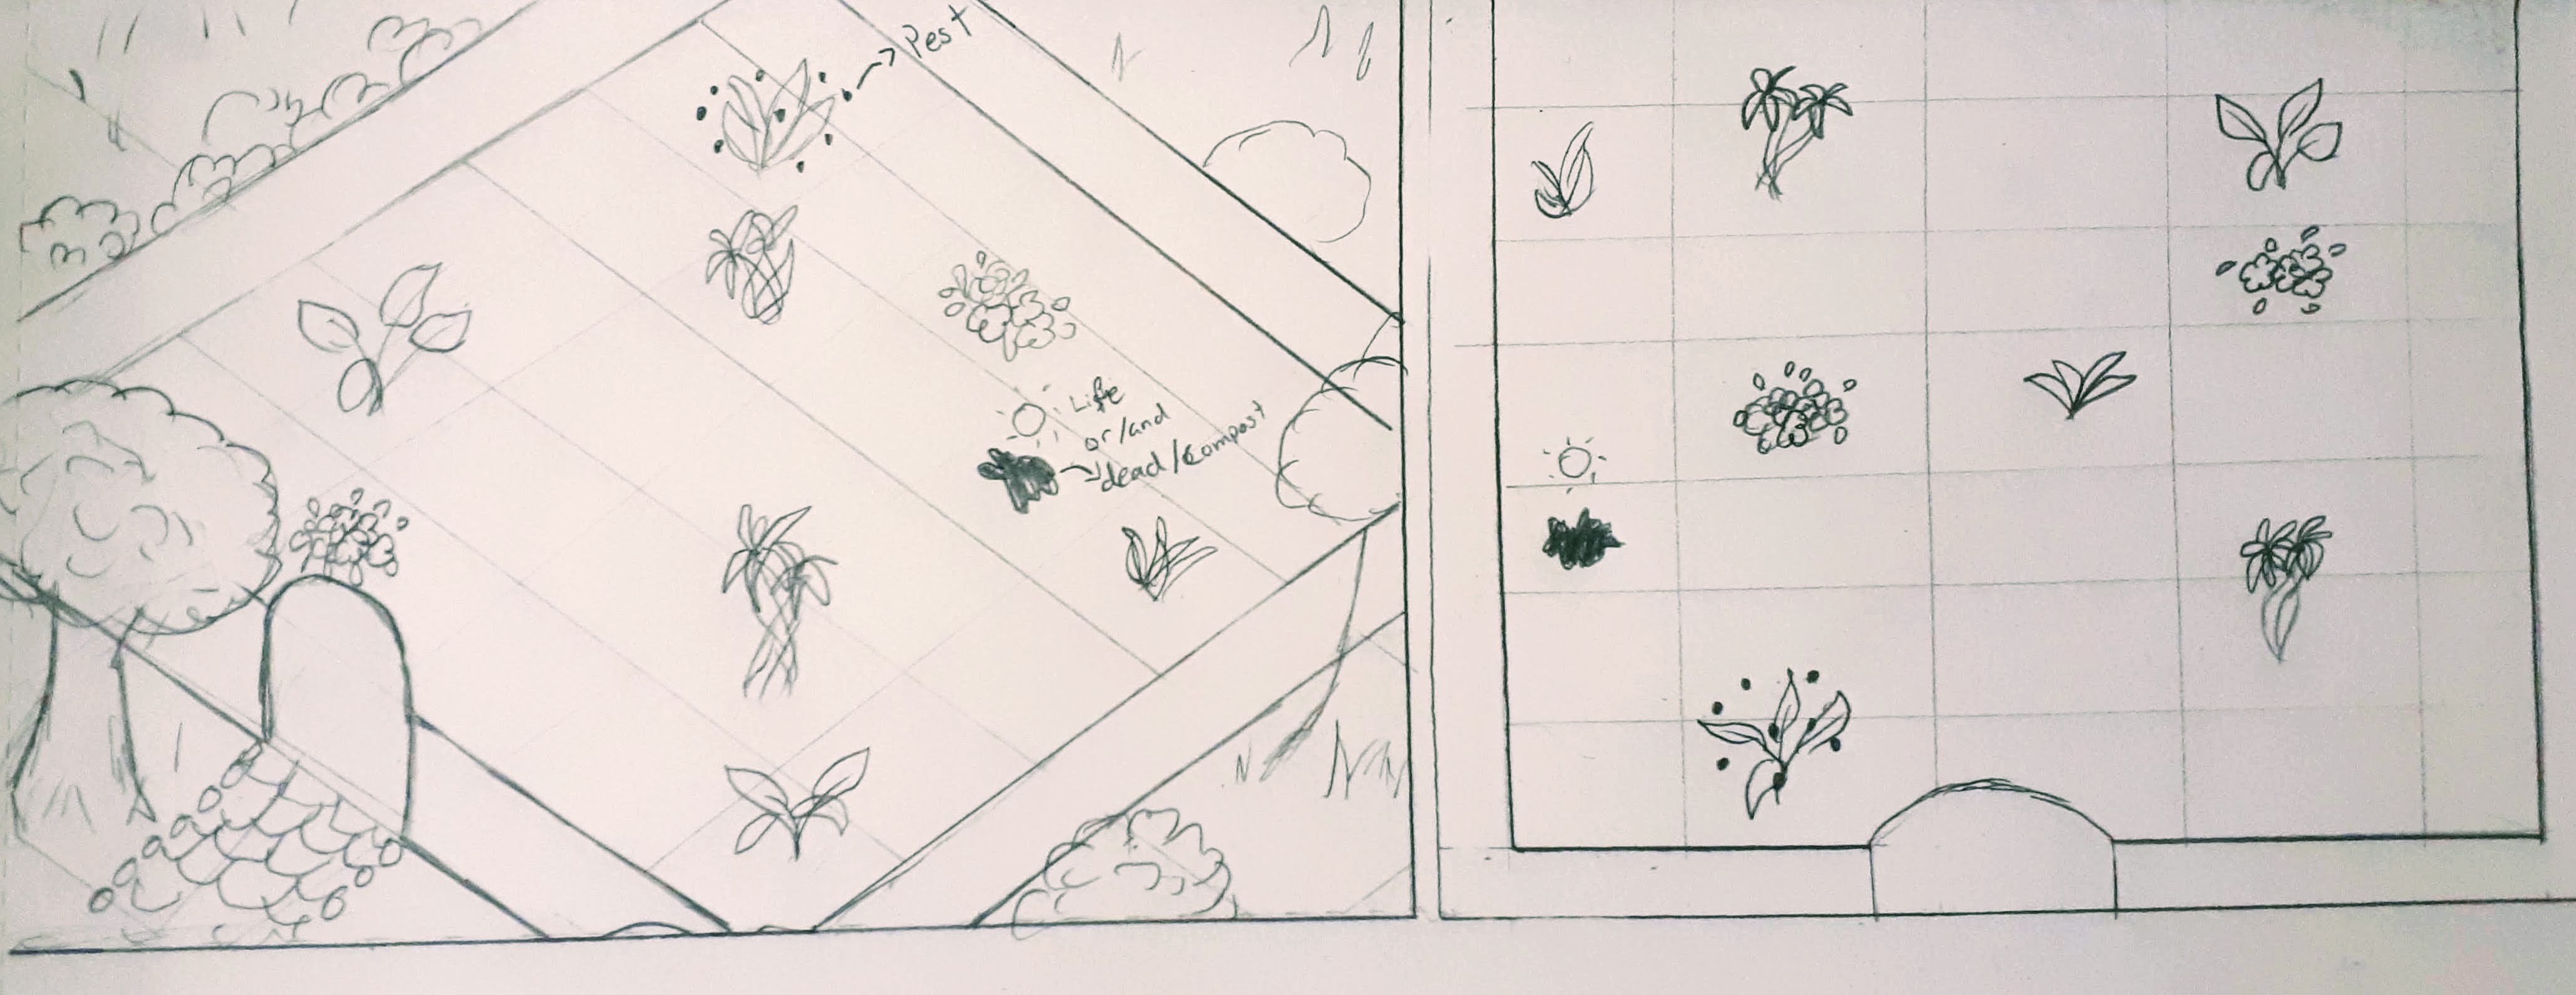 Pest
Life
or/and
dead/compost